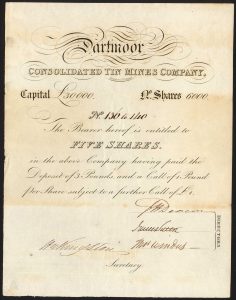 Dartmoor
CONSOLIDATED TIN MINES COMPANY,
Capital £30000. No. Shares 6000.
No. 136 to 140
The Bearer hereof is entitled to
FIVE SHARES.
in the above Company having paid the
Deposit of 3 Pounds and a Call of 1 Pound
per Share subject to a further Call of £1.
DIRECTORS
Secretary.